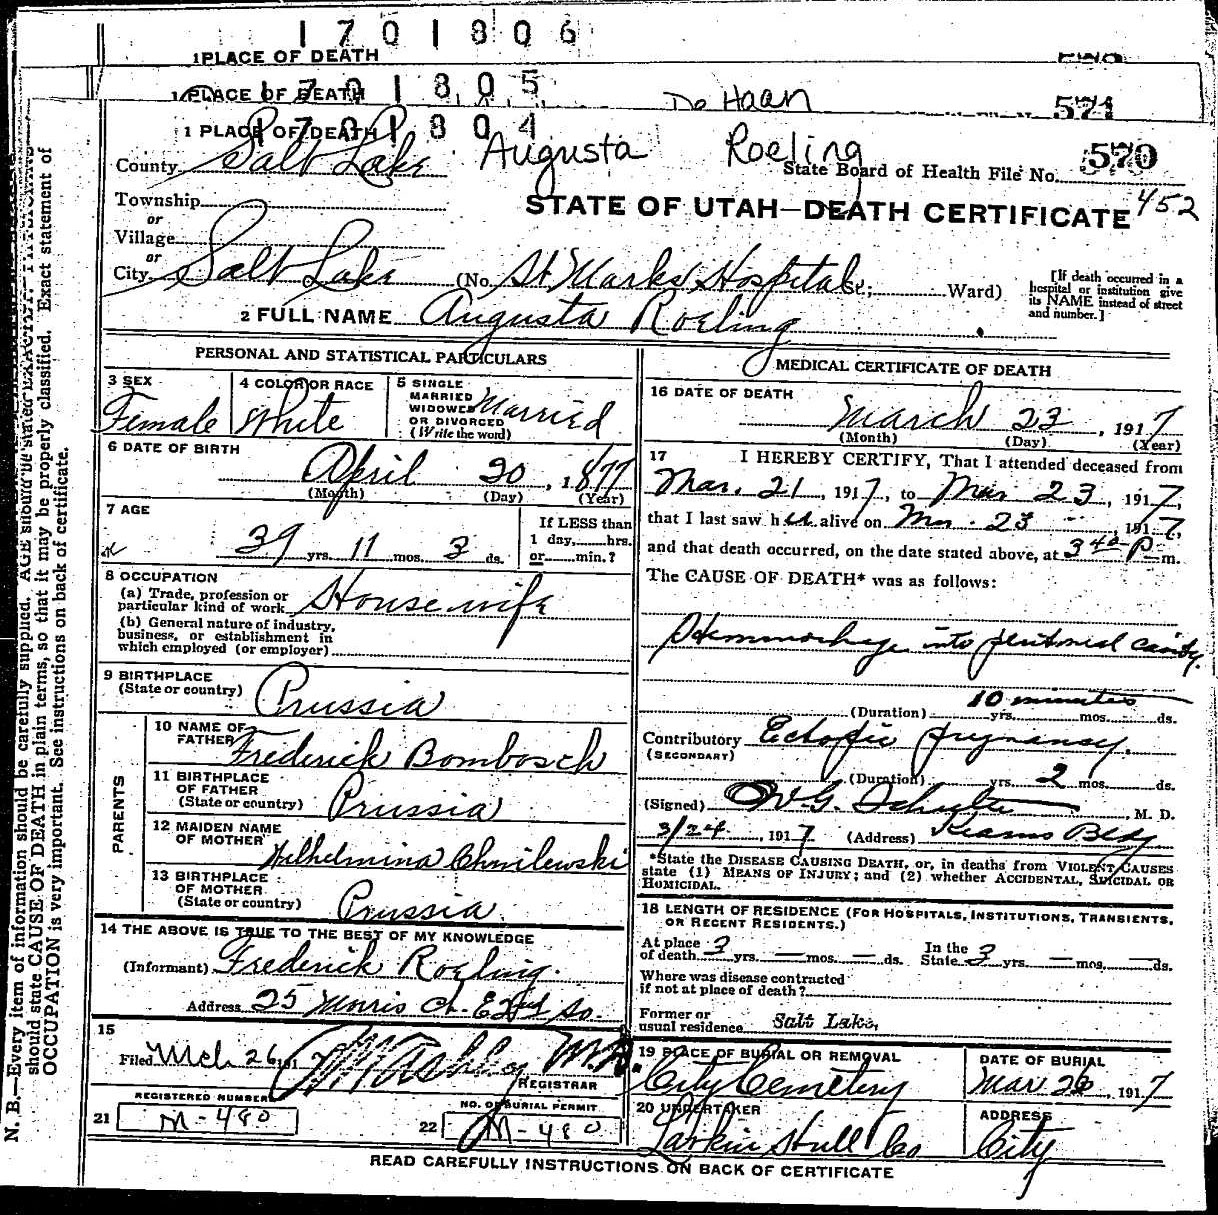 1701806
1 PLACE OF DEATH
1701805
1 PLACE OF DEATH De Haan 571
1701804
1 PLACE OF DEATH
County Salt Lake Augusta Roeling State Board of Health File No. 570
Township
STATE OF UTAH—DEATH CERTIFICATE 452
or
Village
or
City Salt Lake (No. St Marks Hospital St; Ward)
[If death occurred in a hospital or institution give its NAME instead of street and number.]
2 FULL NAME Augusta Roeling
PERSONAL AND STATISTICAL PARTICULARS
3 SEX
Female
4 COLOR OR RACE
White
5 SINGLE
MARRIED
WIDOWED
OR DIVORCED
(Write the word)
Married
6 DATE OF BIRTH
April 20, 1877
(Month) (Day) (Year)
7 AGE
39 yrs. 11 mos. 3 ds.
If LESS than
1 day, hrs.
or min.?
8 OCCUPATION
(a) Trade, profession or
particular kind of work Housewife
(b) General nature of industry,
business, or establishment in
which employed (or employer)
9 BIRTHPLACE
(State or country) Prussia
PARENTS
10 NAME OF
FATHER Frederick Bombosch
11 BIRTHPLACE
OF FATHER
(State or country) Prussia
12 MAIDEN NAME
OF MOTHER Wilhelmina Chmilewski
13 BIRTHPLACE
OF MOTHER
(State or country) Prussia
14 THE ABOVE IS TRUE TO THE BEST OF MY KNOWLEDGE
(Informant) Frederick Roeling.
Address 25 Morris Ct. E 2nd So.
15
Filed Mch 26 191 7 M.D.
REGISTRAR
REGISTERED NUMBER
21 M-480
NO. OF BURIAL PERMIT
22 M-480
MEDICAL CERTIFICATE OF DEATH
16 DATE OF DEATH
March 23, 1917
(Month) (Day) (Year)
17 I HEREBY CERTIFY, That I attended deceased from
Mar. 21, 1917, to Mar 23, 1917,
that I last saw her alive on Mar. 23, 1917,
and that death occurred, on the date stated above, at 3 40 P m.
The CAUSE OF DEATH* was as follows:
Hemmorhage into peritoneal cavity.
10 minutes
(Duration) yrs. mos. ds.
Contributory Ectopic pregnancy.
(SECONDARY)
(Duration) yrs. 2 mos. ds.
(Signed) W.G. Schulte, M. D.
3/24, 1917 (Address) Kearns Bldg
*State the DISEASE CAUSING DEATH, or, in deaths from VIOLENT CAUSES
state (1) MEANS OF INJURY; and (2) whether ACCIDENTAL, SUICIDAL OR
HOMICIDAL.
18 LENGTH OF RESIDENCE (FOR HOSPITALS, INSTITUTIONS, TRANSIENTS,
OR RECENT RESIDENTS.)
At place of death 3 yrs. — mos. — ds. In the State 3 yrs. — mos. — ds.
Where was disease contracted
if not at place of death?
Former or
usual residence Salt Lake,
19 PLACE OF BURIAL OR REMOVAL
City Cemetery
DATE OF BURIAL
Mar 26, 1917
20 UNDERTAKER
Larkin Hull Co
ADDRESS
City
READ CAREFULLY INSTRUCTIONS ON BACK OF CERTIFICATE
N. B.—Every item of information should be carefully supplied. AGE should be stated EXACTLY.
should state CAUSE OF DEATH in plain terms, so that it may be properly classified. Exact statement of
OCCUPATION is very important. See instructions on back of certificate.